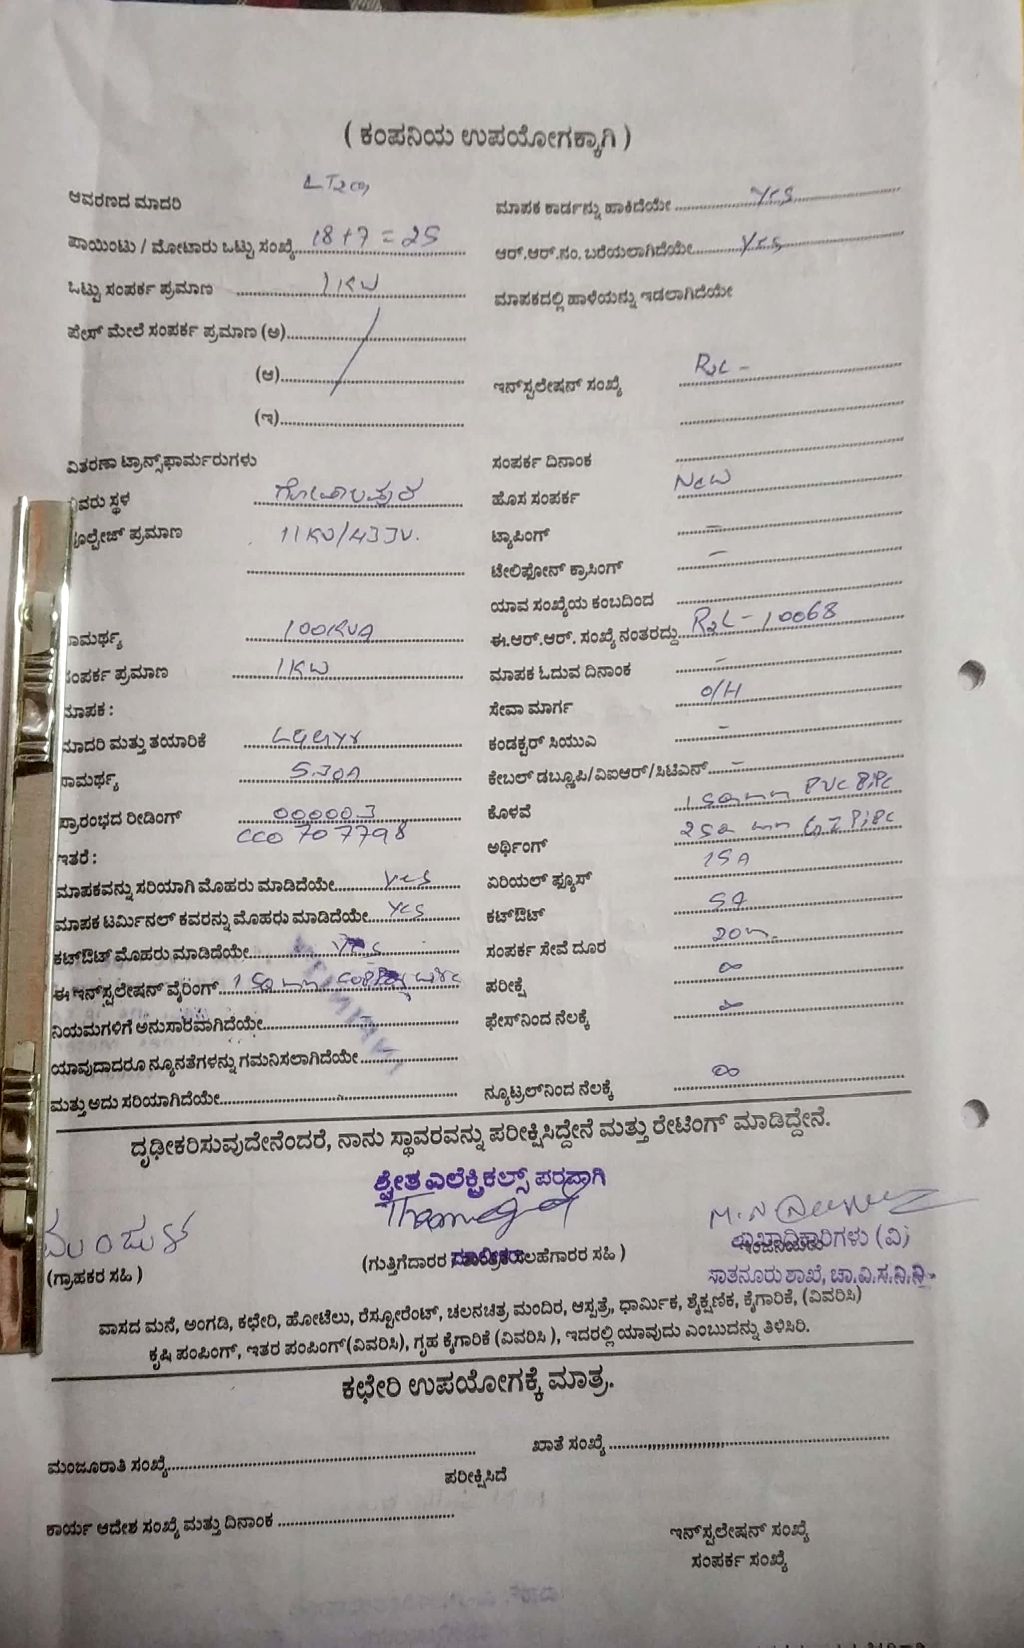 ( ಕಂಪನಿಯ ಉಪಯೋಗಕ್ಕಾಗಿ )
ಆವರಣದ ಮಾದರಿ
ಪಾಯಿಂಟು / ಮೋಟಾರು ಒಟ್ಟು ಸಂಖ್ಯೆ 18+7 = 25
ಒಟ್ಟು ಸಂಪರ್ಕ ಪ್ರಮಾಣ 1KW
ಪೇಸ್ ಮೇಲೆ ಸಂಪರ್ಕ ಪ್ರಮಾಣ (ಅ)
(ಆ)
(ಇ)
ವಿತರಣಾ ಟ್ರಾನ್ಸ್‌ಫಾರ್ಮರುಗಳು
ವಿವರು ಸ್ಥಳ
ವೋಲ್ಟೇಜ್ ಪ್ರಮಾಣ 11KV/433V.
ಸಾಮರ್ಥ್ಯ 100KVA
ಸಂಪರ್ಕ ಪ್ರಮಾಣ 1KW
ಮಾಪಕ :
ಮಾದರಿ ಮತ್ತು ತಯಾರಿಕೆ
ಸಾಮರ್ಥ್ಯ 5.30A
ಪ್ರಾರಂಭದ ರೀಡಿಂಗ್ 000003
CCO 707798
ಇತರೆ :
ಮಾಪಕವನ್ನು ಸರಿಯಾಗಿ ಮೊಹರು ಮಾಡಿದೆಯೇ yes
ಮಾಪಕ ಟರ್ಮಿನಲ್ ಕವರನ್ನು ಮೊಹರು ಮಾಡಿದೆಯೇ yes
ಕಟ್‌ಔಟ್ ಮೊಹರು ಮಾಡಿದೆಯೇ yes
ಈ ಇನ್‌ಸ್ಟಲೇಷನ್ ವೈರಿಂಗ್
ನಿಯಮಗಳಿಗೆ ಅನುಸಾರವಾಗಿದೆಯೇ
ಯಾವುದಾದರೂ ನ್ಯೂನತೆಗಳನ್ನು ಗಮನಿಸಲಾಗಿದೆಯೇ
ಮತ್ತು ಅದು ಸರಿಯಾಗಿದೆಯೇ
ಮಾಪಕ ಕಾರ್ಡನ್ನು ಹಾಕಿದೆಯೇ Yes
ಆರ್.ಆರ್.ನಂ. ಬರೆಯಲಾಗಿದೆಯೇ Yes
ಮಾಪಕದಲ್ಲಿ ಹಾಳೆಯನ್ನು ಇಡಲಾಗಿದೆಯೇ
ಇನ್‌ಸ್ಟಲೇಷನ್ ಸಂಖ್ಯೆ
ಸಂಪರ್ಕ ದಿನಾಂಕ
ಹೊಸ ಸಂಪರ್ಕ New
ಟ್ಯಾಪಿಂಗ್ –
ಟೇಲಿಫೋನ್ ಕ್ರಾಸಿಂಗ್ –
ಯಾವ ಸಂಖ್ಯೆಯ ಕಂಬದಿಂದ
ಈ.ಆರ್.ಆರ್. ಸಂಖ್ಯೆ ನಂತರದ್ದು R2L - 10068
ಮಾಪಕ ಓದುವ ದಿನಾಂಕ –
ಸೇವಾ ಮಾರ್ಗ O/H
ಕಂಡಕ್ಟರ್ ಸಿಯುಎ –
ಕೇಬಲ್ ಡಬ್ಲ್ಯೂಪಿ/ವಿಐಆರ್/ಸಿಟಿಎಸ್ –
ಕೊಳವೆ PVC Pipe
ಅರ್ಥಿಂಗ್ GI Pipe
ಏರಿಯಲ್ ಫ್ಯೂಸ್ 15A
ಕಟ್‌ಔಟ್ 5A
ಸಂಪರ್ಕ ಸೇವೆ ದೂರ 20m.
ಪರೀಕ್ಷೆ ∞
ಫೇಸ್‌ನಿಂದ ನೆಲಕ್ಕೆ ∞
ನ್ಯೂಟ್ರಲ್‌ನಿಂದ ನೆಲಕ್ಕೆ ∞
ದೃಢೀಕರಿಸುವುದೇನೆಂದರೆ, ನಾನು ಸ್ಥಾವರವನ್ನು ಪರೀಕ್ಷಿಸಿದ್ದೇನೆ ಮತ್ತು ರೇಟಿಂಗ್ ಮಾಡಿದ್ದೇನೆ.
ಶ್ವೇತ ಎಲೆಕ್ಟ್ರಿಕಲ್ಸ್ ಪರವಾಗಿ
ಮಂಜುಳ
(ಗ್ರಾಹಕರ ಸಹಿ )
(ಗುತ್ತಿಗೆದಾರರ ಸಲಹೆಗಾರರ ಸಹಿ )
ಶಾಖಾಧಿಕಾರಿಗಳು (ವಿ)
ಸಾತನೂರು ಶಾಖೆ, ಚಾ.ವಿ.ಸ.ನಿ.ನಿ.
ವಾಸದ ಮನೆ, ಅಂಗಡಿ, ಕಛೇರಿ, ಹೋಟೆಲು, ರೆಸ್ಟೋರೆಂಟ್, ಚಲನಚಿತ್ರ ಮಂದಿರ, ಆಸ್ಪತ್ರೆ, ಧಾರ್ಮಿಕ, ಶೈಕ್ಷಣಿಕ, ಕೈಗಾರಿಕೆ, (ವಿವರಿಸಿ)
ಕೃಷಿ ಪಂಪಿಂಗ್, ಇತರ ಪಂಪಿಂಗ್(ವಿವರಿಸಿ), ಗೃಹ ಕೈಗಾರಿಕೆ (ವಿವರಿಸಿ ), ಇದರಲ್ಲಿ ಯಾವುದು ಎಂಬುದನ್ನು ತಿಳಿಸಿರಿ.
ಕಛೇರಿ ಉಪಯೋಗಕ್ಕೆ ಮಾತ್ರ.
ಮಂಜೂರಾತಿ ಸಂಖ್ಯೆ
ಖಾತೆ ಸಂಖ್ಯೆ
ಪರೀಕ್ಷಿಸಿದೆ
ಕಾರ್ಯ ಆದೇಶ ಸಂಖ್ಯೆ ಮತ್ತು ದಿನಾಂಕ
ಇನ್‌ಸ್ಟಲೇಷನ್ ಸಂಖ್ಯೆ
ಸಂಪರ್ಕ ಸಂಖ್ಯೆ